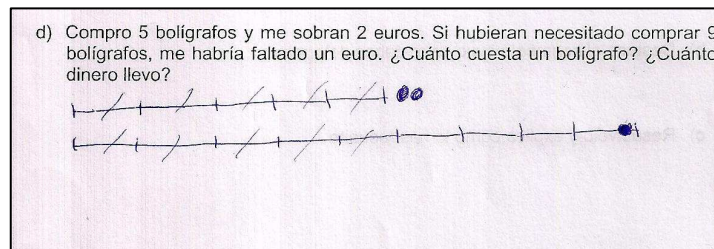 d) Compro 5 bolígrafos y me sobran 2 euros. Si hubieran necesitado comprar 9
bolígrafos, me habría faltado un euro. ¿Cuánto cuesta un bolígrafo? ¿Cuánto
dinero llevo?